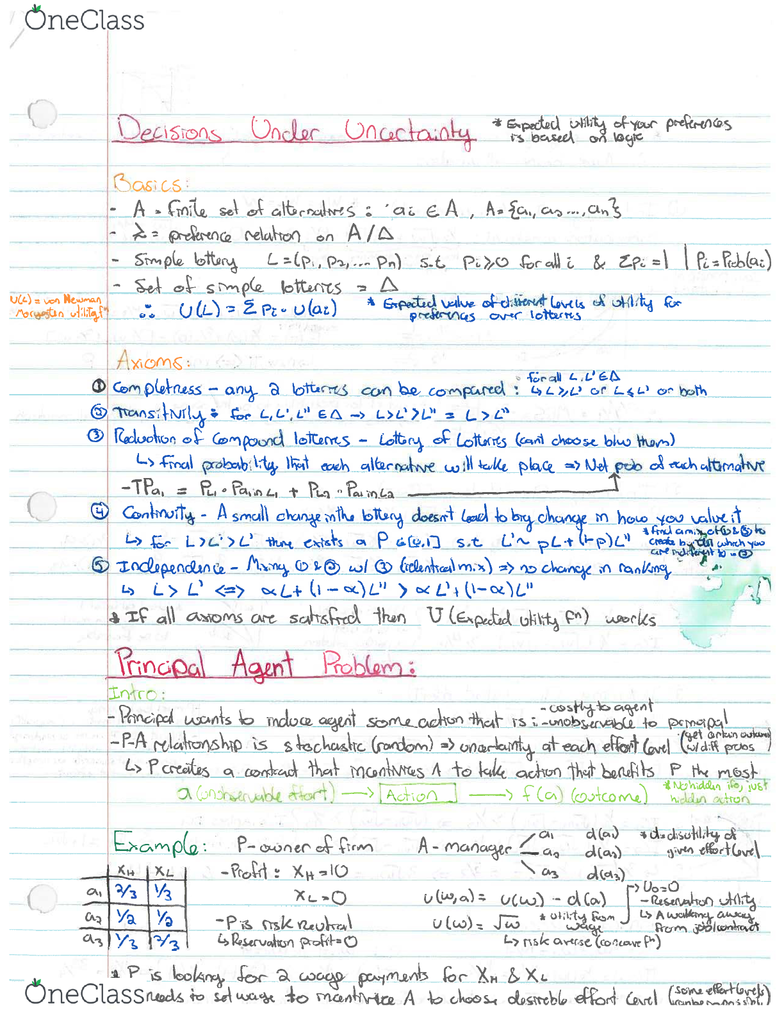 OneClass
Decisions Under Uncertainty * Expected utility of your preferences
is based on logic
Basics:
- A = finite set of alternatives : ai ∈ A , A = {a1, a2 ..., an}
- ≿ = preference relation on A/Δ
- Simple lottery L = (p1, p2, ... pn) s.t Pi ≥ 0 for all i & ΣPi = 1 | Pi = Prob(ai)
- Set of simple lotteries = Δ
U(L) = von Newman
Morgesten utility fn
∴ U(L) = Σ Pi · U(ai) * Expected value of different levels of utility for
preferences over lotteries
Axioms:
① Completness - any 2 lotteries can be compared : for all L, L' ∈ Δ
↳ L ≿ L' or L ≾ L' or both
② Transitivity : for L, L', L'' ∈ Δ → L > L' > L'' = L > L''
③ Reduction of Compound lotteries - Lottery of Lotteries (can't choose b/w them)
↳ final probability that each alternative will take place => Net prob of each alternative
- TPa1 = PL1 · Pa1 in L1 + PL2 · Pa1 in L2
④ Continuity - A small change in the lottery doesn't lead to big change in how you value it
↳ for L > L' > L'' there exists a P ∈ [0,1] s.t L' ~ pL + (1-p)L''
* find a mix of ① & ③ to
create which you
are indifferent to
⑤ Independence - Mixing ① & ② w/ ③ (identical mix) => no change in ranking
↳ L > L' <=> αL + (1-α)L'' > αL' + (1-α)L''
* If all axioms are satisfied then U (Expected utility fn) works
Principal Agent Problem:
Intro:
- Principal wants to induce agent some action that is : - costly to agent
- unobservable to principal
- P-A relationship is stochastic (random) => uncertainty at each effort level (get certain outcome
w/ diff probs)
↳ P creates a contract that incentivizes A to take action that benefits P the most
a (unobservable effort) → Action → f(a) (outcome) * No hidden ifo, just
hidden action
Example: P - owner of firm A - manager a1 d(a1) * d = disutility of
a2 d(a2) given effort level
a3 d(a3)
XH XL
a1 2/3 1/3
a2 1/2 1/2
a3 1/3 2/3
- Profit : XH = 10
XL = 0
- P is risk neutral
↳ Reservation profit = 0
u(w,a) = u(w) - d(a)
u(w) = √w * utility from
wage
↳ risk averse (concave fn)
U0 = 0
- Reservation utility
↳ A walking away
from job/contract
* P is looking for 2 wage payments for XH & XL
OneClass needs to set wage to incentivize A to choose desireble effort level (some effort levels